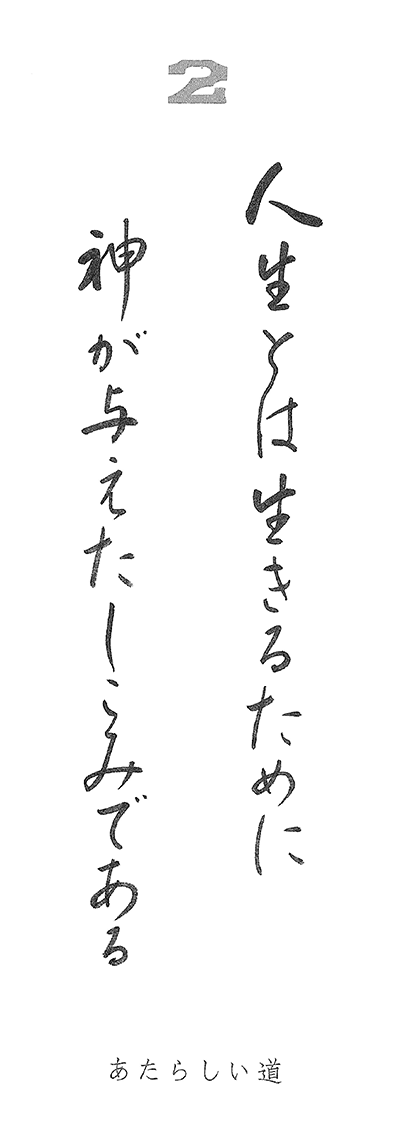 2
人生とは生きるために
神が与えたしこみである
あたらしい道